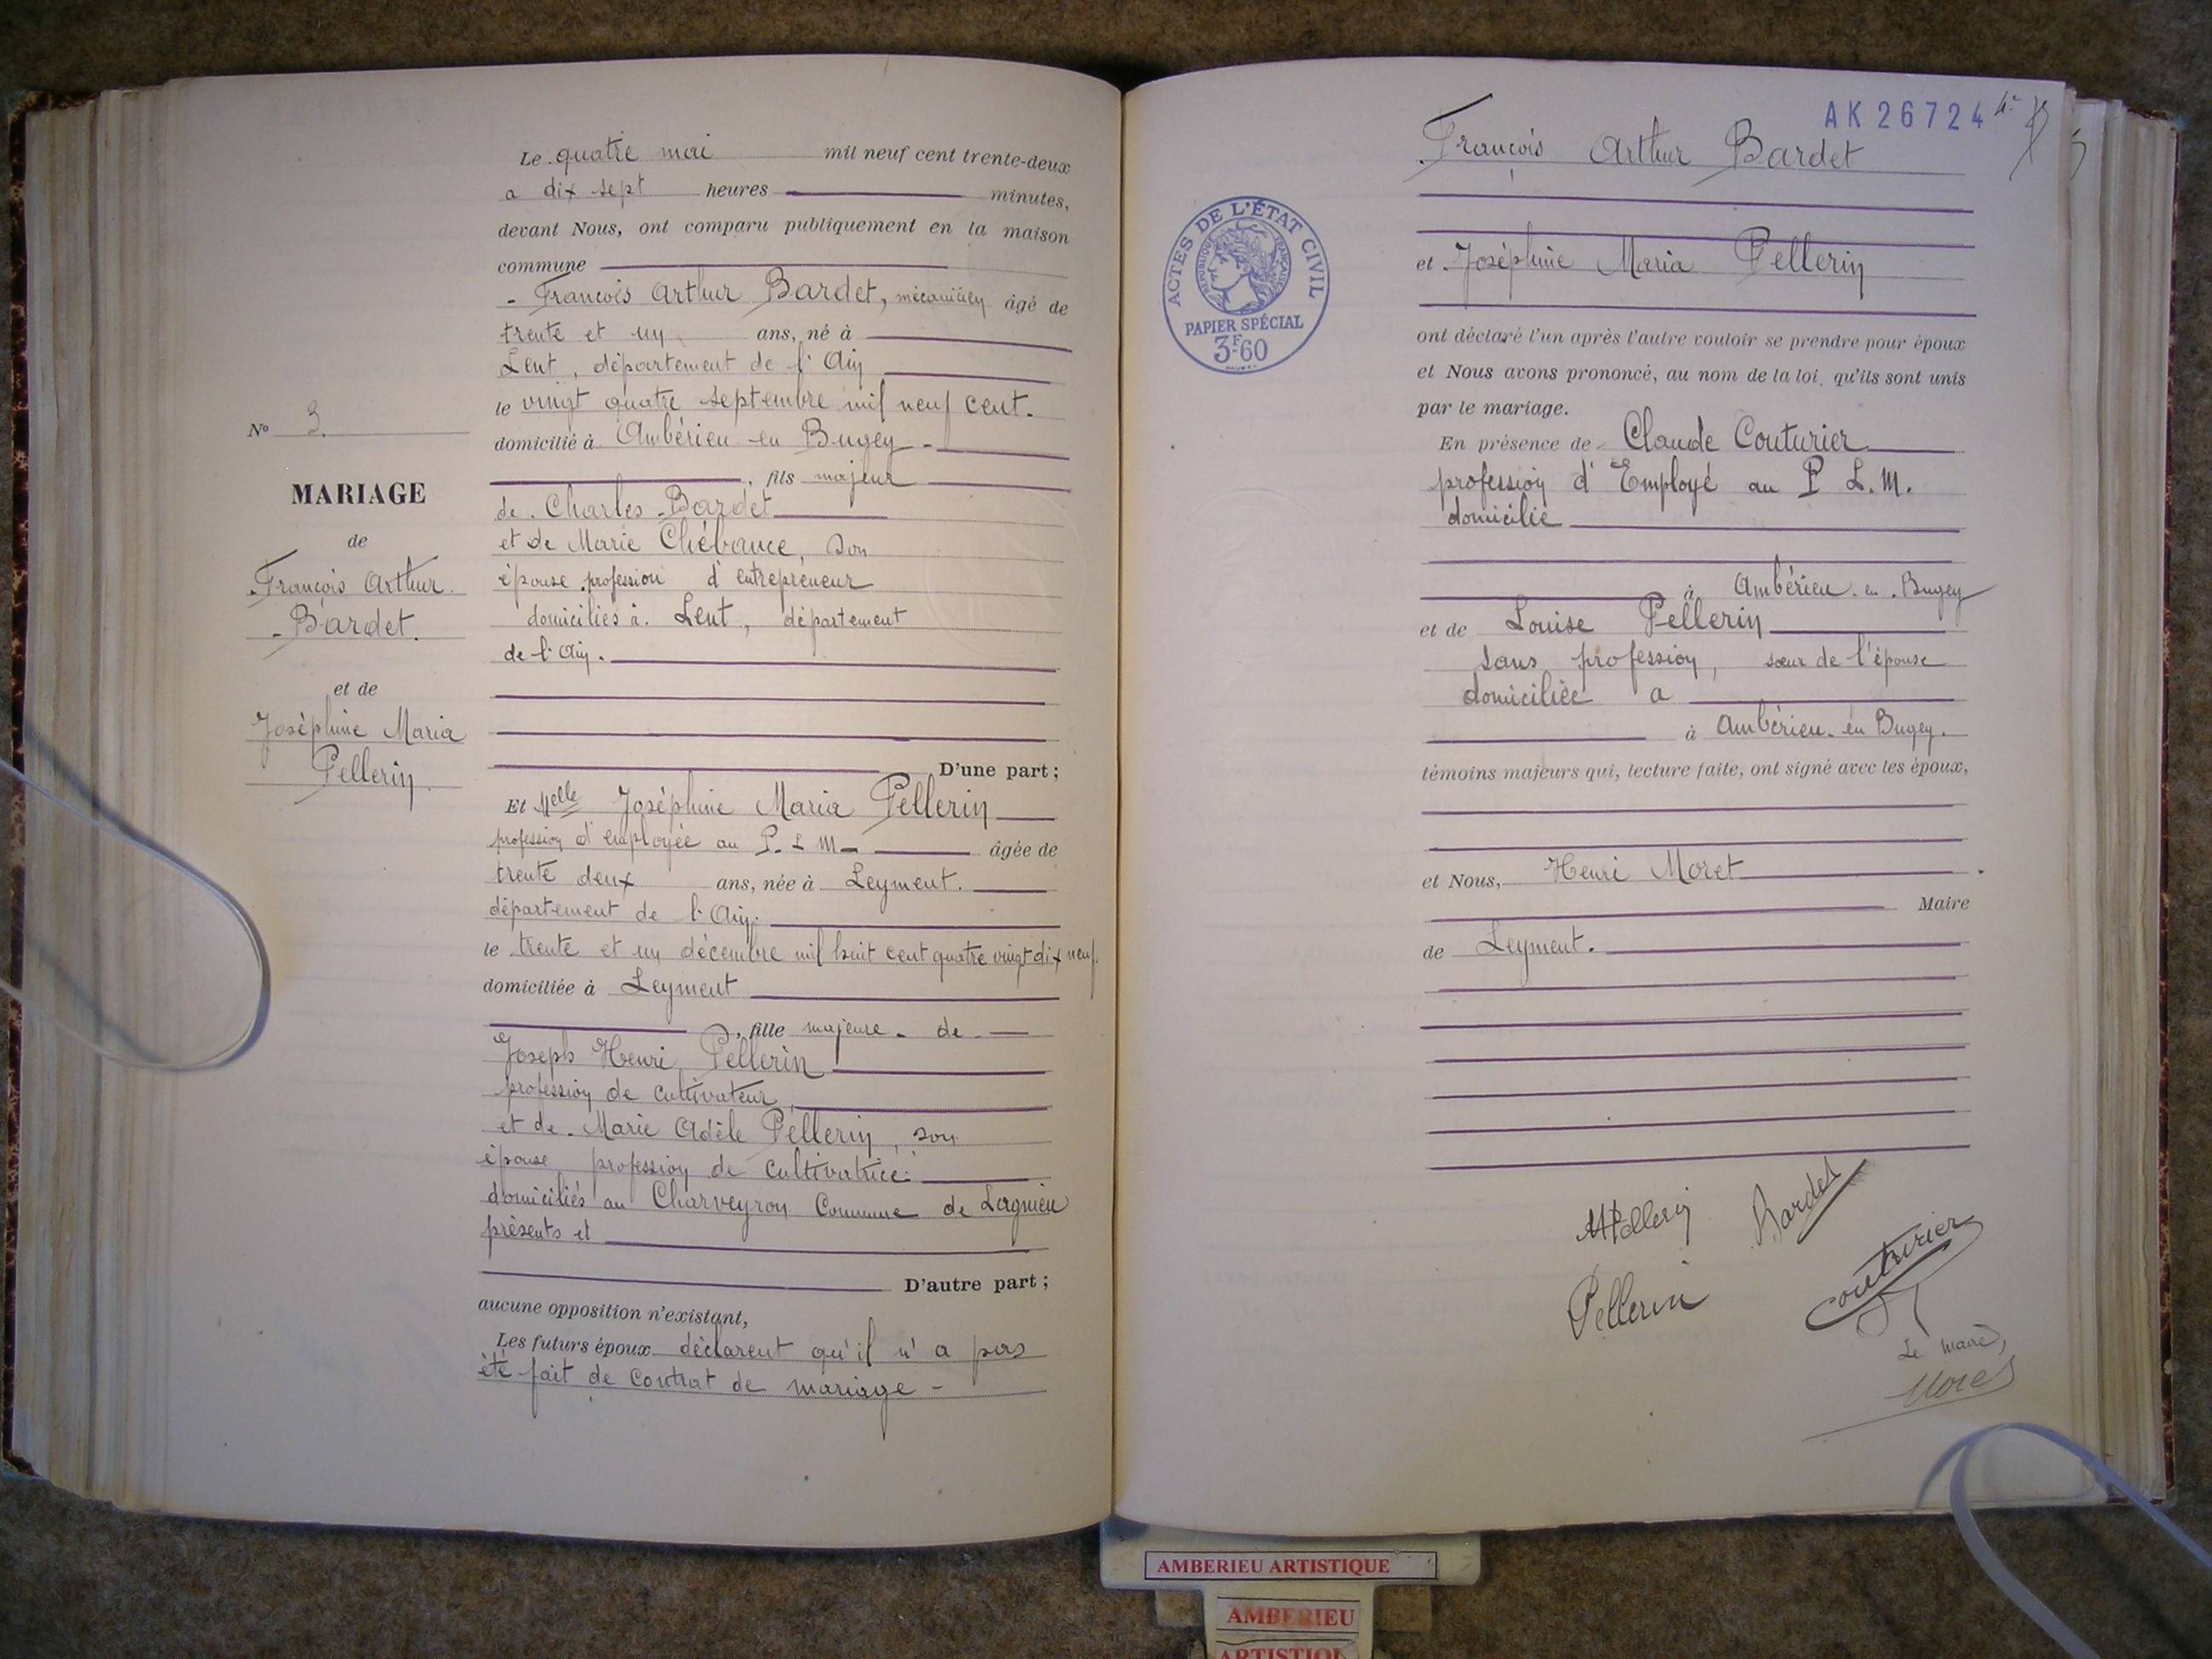 Le quatre mai mil neuf cent trente-deux
a dix sept heures minutes,
devant Nous, ont comparu publiquement en la maison
commune
François Arthur Bardet, mécanicien âgé de
trente et un ans, né à
Lent, département de l'Ain
le vingt quatre septembre mil neuf cent.
domicilié à Ambérieu en Bugey -
, fils majeur
de Charles Bardet
et de Marie Chébance, son
épouse profession d'entrepreneur
domiciliés à Lent, département
de l'Ain.
D'une part ;
Et Melle Joséphine Maria Pellerin
profession d'employée au P. L M- âgée de
trente deux ans, née à Leyment.
département de l'Ain.
le trente et un décembre mil huit cent quatre vingt dix neuf.
domiciliée à Leyment
, fille majeure - de -
Joseph Henri Pellerin
profession de cultivateur,
et de Marie Adèle Pellerin, son
épouse, profession de cultivatrice.
domiciliés au Charveyron Commune de Lagnieu
présents et
D'autre part ;
aucune opposition n'existant,
Les futurs époux déclarent qu'il n'a pas
été fait de Contrat de mariage -
N° 3.
MARIAGE
de
François Arthur
Bardet.
et de
Joséphine Maria
Pellerin.
AK 26724
François Arthur Bardet
et Joséphine Maria Pellerin
ACTES DE L'ÉTAT CIVIL
RÉPUBLIQUE FRANÇAISE
PAPIER SPÉCIAL
3F.60
ont déclaré l'un après l'autre vouloir se prendre pour époux
et Nous avons prononcé, au nom de la loi, qu'ils sont unis
par le mariage.
En présence de Claude Couturier
profession d'Employé au P L.M.
domicilié
à Ambérieu-en-Bugey
et de Louise Pellerin
sans profession, sœur de l'épouse
domiciliée a
à Ambérieu-en Bugey.
témoins majeurs qui, lecture faite, ont signé avec les époux,
et Nous, Henri Moret
Maire
de Leyment.
MPellerin Bardet
Pellerin Couturier
Le maire,
Moret
AMBERIEU ARTISTIQUE
AMBERIEU